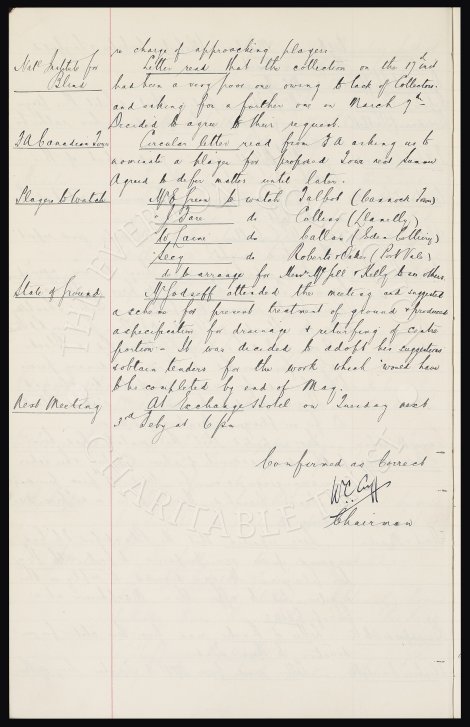 in charge of approaching players.
Natl Institute for Blind
Letter read that the collection on the 17th inst
had been a very poor one owing to lack of Collectors
and asking for a further one on March 7th.
Decided to agree to their request.
F A Canadian Tour
Circular letter read from F A asking us to
nominate a player for proposed Tour next Summer
Agreed to defer matter until later.
Players to Watch
Mr E Green to watch Talbot (Cannock Town)
do Collins (Llanelly)
do Callan (Eden Colliery)
do Roberts (Port Vale)
do to arrange for Messrs McGill & Kelly to see others
State of Ground
attended the meeting and suggested
a scheme for present treatment of ground & produced
a specification for drainage & returfing of centre
portion. It was decided to adopt his suggestions
& obtain tenders for the work which would have
to be completed by end of May.
Next Meeting
At Exchange Hotel on Tuesday next
3rd Feby at 6 pm
Confirmed as Correct
W. C. Cuff
Chairman
THE EVERTON
CHARITABLE TRUST